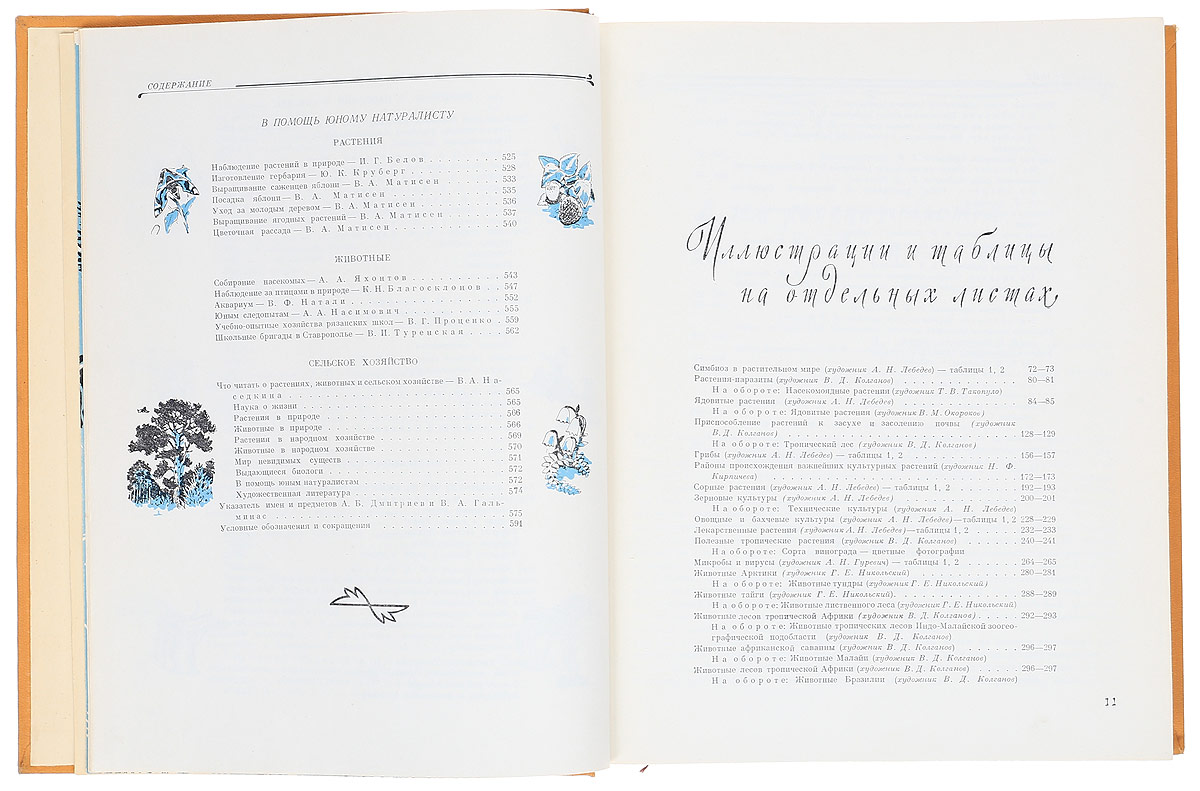 СОДЕРЖАНИЕ
В ПОМОЩЬ ЮНОМУ НАТУРАЛИСТУ
РАСТЕНИЯ
Наблюдение растений в природе — И. Г. Белов . . . . . . . . 525
Изготовление гербария — Ю. К. Круберг . . . . . . . . . 528
Выращивание саженцев яблони — В. А. Матисен . . . . . . 533
Посадка яблони — В. А. Матисен . . . . . . . . . . . 535
Уход за молодым деревом — В. А. Матисен . . . . . . . . 536
Выращивание ягодных растений — В. А. Матисен . . . . . . 537
Цветочная рассада — В. А. Матисен . . . . . . . . . . 540
ЖИВОТНЫЕ
Собирание насекомых — А. А. Яхонтов . . . . . . . . . 543
Наблюдение за птицами в природе — К. Н. Благосклонов . . 547
Аквариум — В. Ф. Натали . . . . . . . . . . . . . . 552
Юным следопытам — А. А. Насимович . . . . . . . . . . 555
Учебно-опытные хозяйства рязанских школ — В. Г. Проценко . 559
Школьные бригады в Ставрополье — В. И. Туренская . . . . 562
СЕЛЬСКОЕ ХОЗЯЙСТВО
Что читать о растениях, животных и сельском хозяйстве — В. А. На-
седкина . . . . . . . . . . . . . . . . . . 565
Наука о жизни . . . . . . . . . . . . . . . . 565
Растения в природе . . . . . . . . . . . . . . 566
Животные в природе . . . . . . . . . . . . . . 566
Растения в народном хозяйстве . . . . . . . . . . 569
Животные в народном хозяйстве . . . . . . . . . . 570
Мир невидимых существ . . . . . . . . . . . . . 571
Выдающиеся биологи . . . . . . . . . . . . . . 572
В помощь юным натуралистам . . . . . . . . . . . 572
Художественная литература . . . . . . . . . . . . 574
Указатель имен и предметов А. Б. Дмитриев и В. А. Галь-
минас . . . . . . . . . . . . . . . . . . . 575
Условные обозначения и сокращения . . . . . . . . . . 591
Иллюстрации и таблицы
на отдельных листах
Симбиоз в растительном мире (художник А. Н. Лебедев) — таблицы 1, 2 72—73
Растения-паразиты (художник В. Д. Колганов) . . . . . . . . 80—81
На обороте: Насекомоядные растения (художник Т. В. Такопуло)
Ядовитые растения (художник А. Н. Лебедев) . . . . . . . . 84—85
На обороте: Ядовитые растения (художник В. М. Окороков)
Приспособление растений к засухе и засолению почвы (художник
В. Д. Колганов) . . . . . . . . . . . . . . . 128—129
На обороте: Тропический лес (художник В. Д. Колганов)
Грибы (художник А. Н. Лебедев) — таблицы 1, 2 . . . . . . 156—157
Районы происхождения важнейших культурных растений (художник Н. Ф.
Кирпичева) . . . . . . . . . . . . . . . . . 172—173
Сорные растения (художник А. Н. Лебедев) — таблицы 1, 2 . . 192—193
Зерновые культуры (художник А. Н. Лебедев) . . . . . . . 200—201
На обороте: Технические культуры (художник А. Н. Лебедев)
Овощные и бахчевые культуры (художник А. Н. Лебедев)—таблицы 1, 2 228—229
Лекарственные растения (художник А. Н. Лебедев)—таблицы 1, 2 . . 232—233
Полезные тропические растения (художник В. Д. Колганов) . . . . 240—241
На обороте: Сорта винограда — цветные фотографии
Микробы и вирусы (художник А. Н. Гуревич) — таблицы 1, 2 . . . 264—265
Животные Арктики (художник Г. Е. Никольский) . . . . . . . 280—281
На обороте: Животные тундры (художник Г. Е. Никольский)
Животные тайги (художник Г. Е. Никольский). . . . . . . . 288—289
На обороте: Животные лиственного леса (художник Г. Е. Никольский)
Животные лесов тропической Африки (художник В. Д. Колганов) . . . 292—293
На обороте: Животные тропических лесов Индо-Малайской зоогео-
графической подобласти (художник В. Д. Колганов)
Животные африканской саванны (художник В. Д. Колганов) . . . . 296—297
На обороте: Животные Малайи (художник В. Д. Колганов)
Животные лесов тропической Африки (художник В. Д. Колганов) . . . 296—297
На обороте: Животные Бразилии (художник В. Д. Колганов)
11